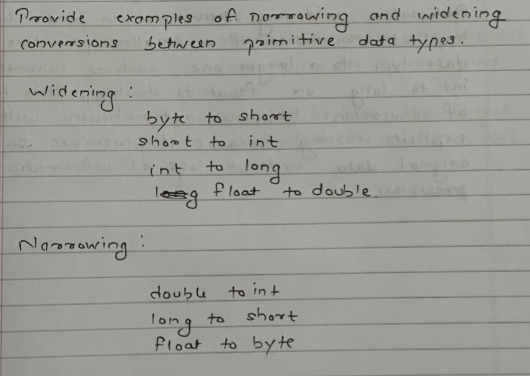 Provide examples of narrowing and widening
conversions between primitive data types.
Widening :
byte to short
short to int
int to long
float to double
Narrowing :
double to int
long to short
float to byte